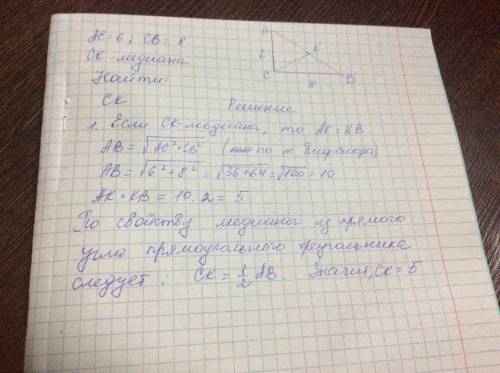 AC = 6, CB = 8
CK - медиана
Найти:
CK
A
6
K
C
8
B
Решение
1. Если CK - медиана, то AK = KB
AB = √AC² + CB² ( по т. Пифагора)
AB = √6² + 8² = √36 + 64 = √100 = 10
AK = KB = 10 : 2 = 5
По свойству медианы из прямого
угла прямоугольного треугольника
следует: CK = 1/2 AB. Значит, CK = 5